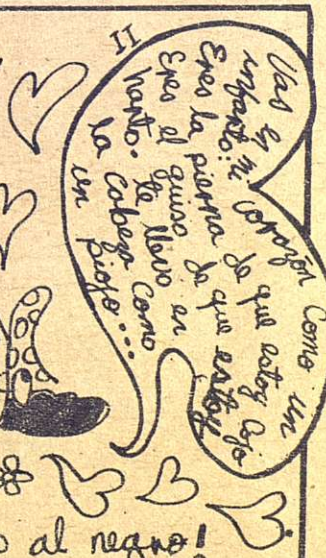 II
Vas en mi corazón como un
infarto.
Eres la pierna de que estoy cojo
Eres el guiso de que estoy
harto. Te llevo en
la cabeza como
un piojo...
al negro!